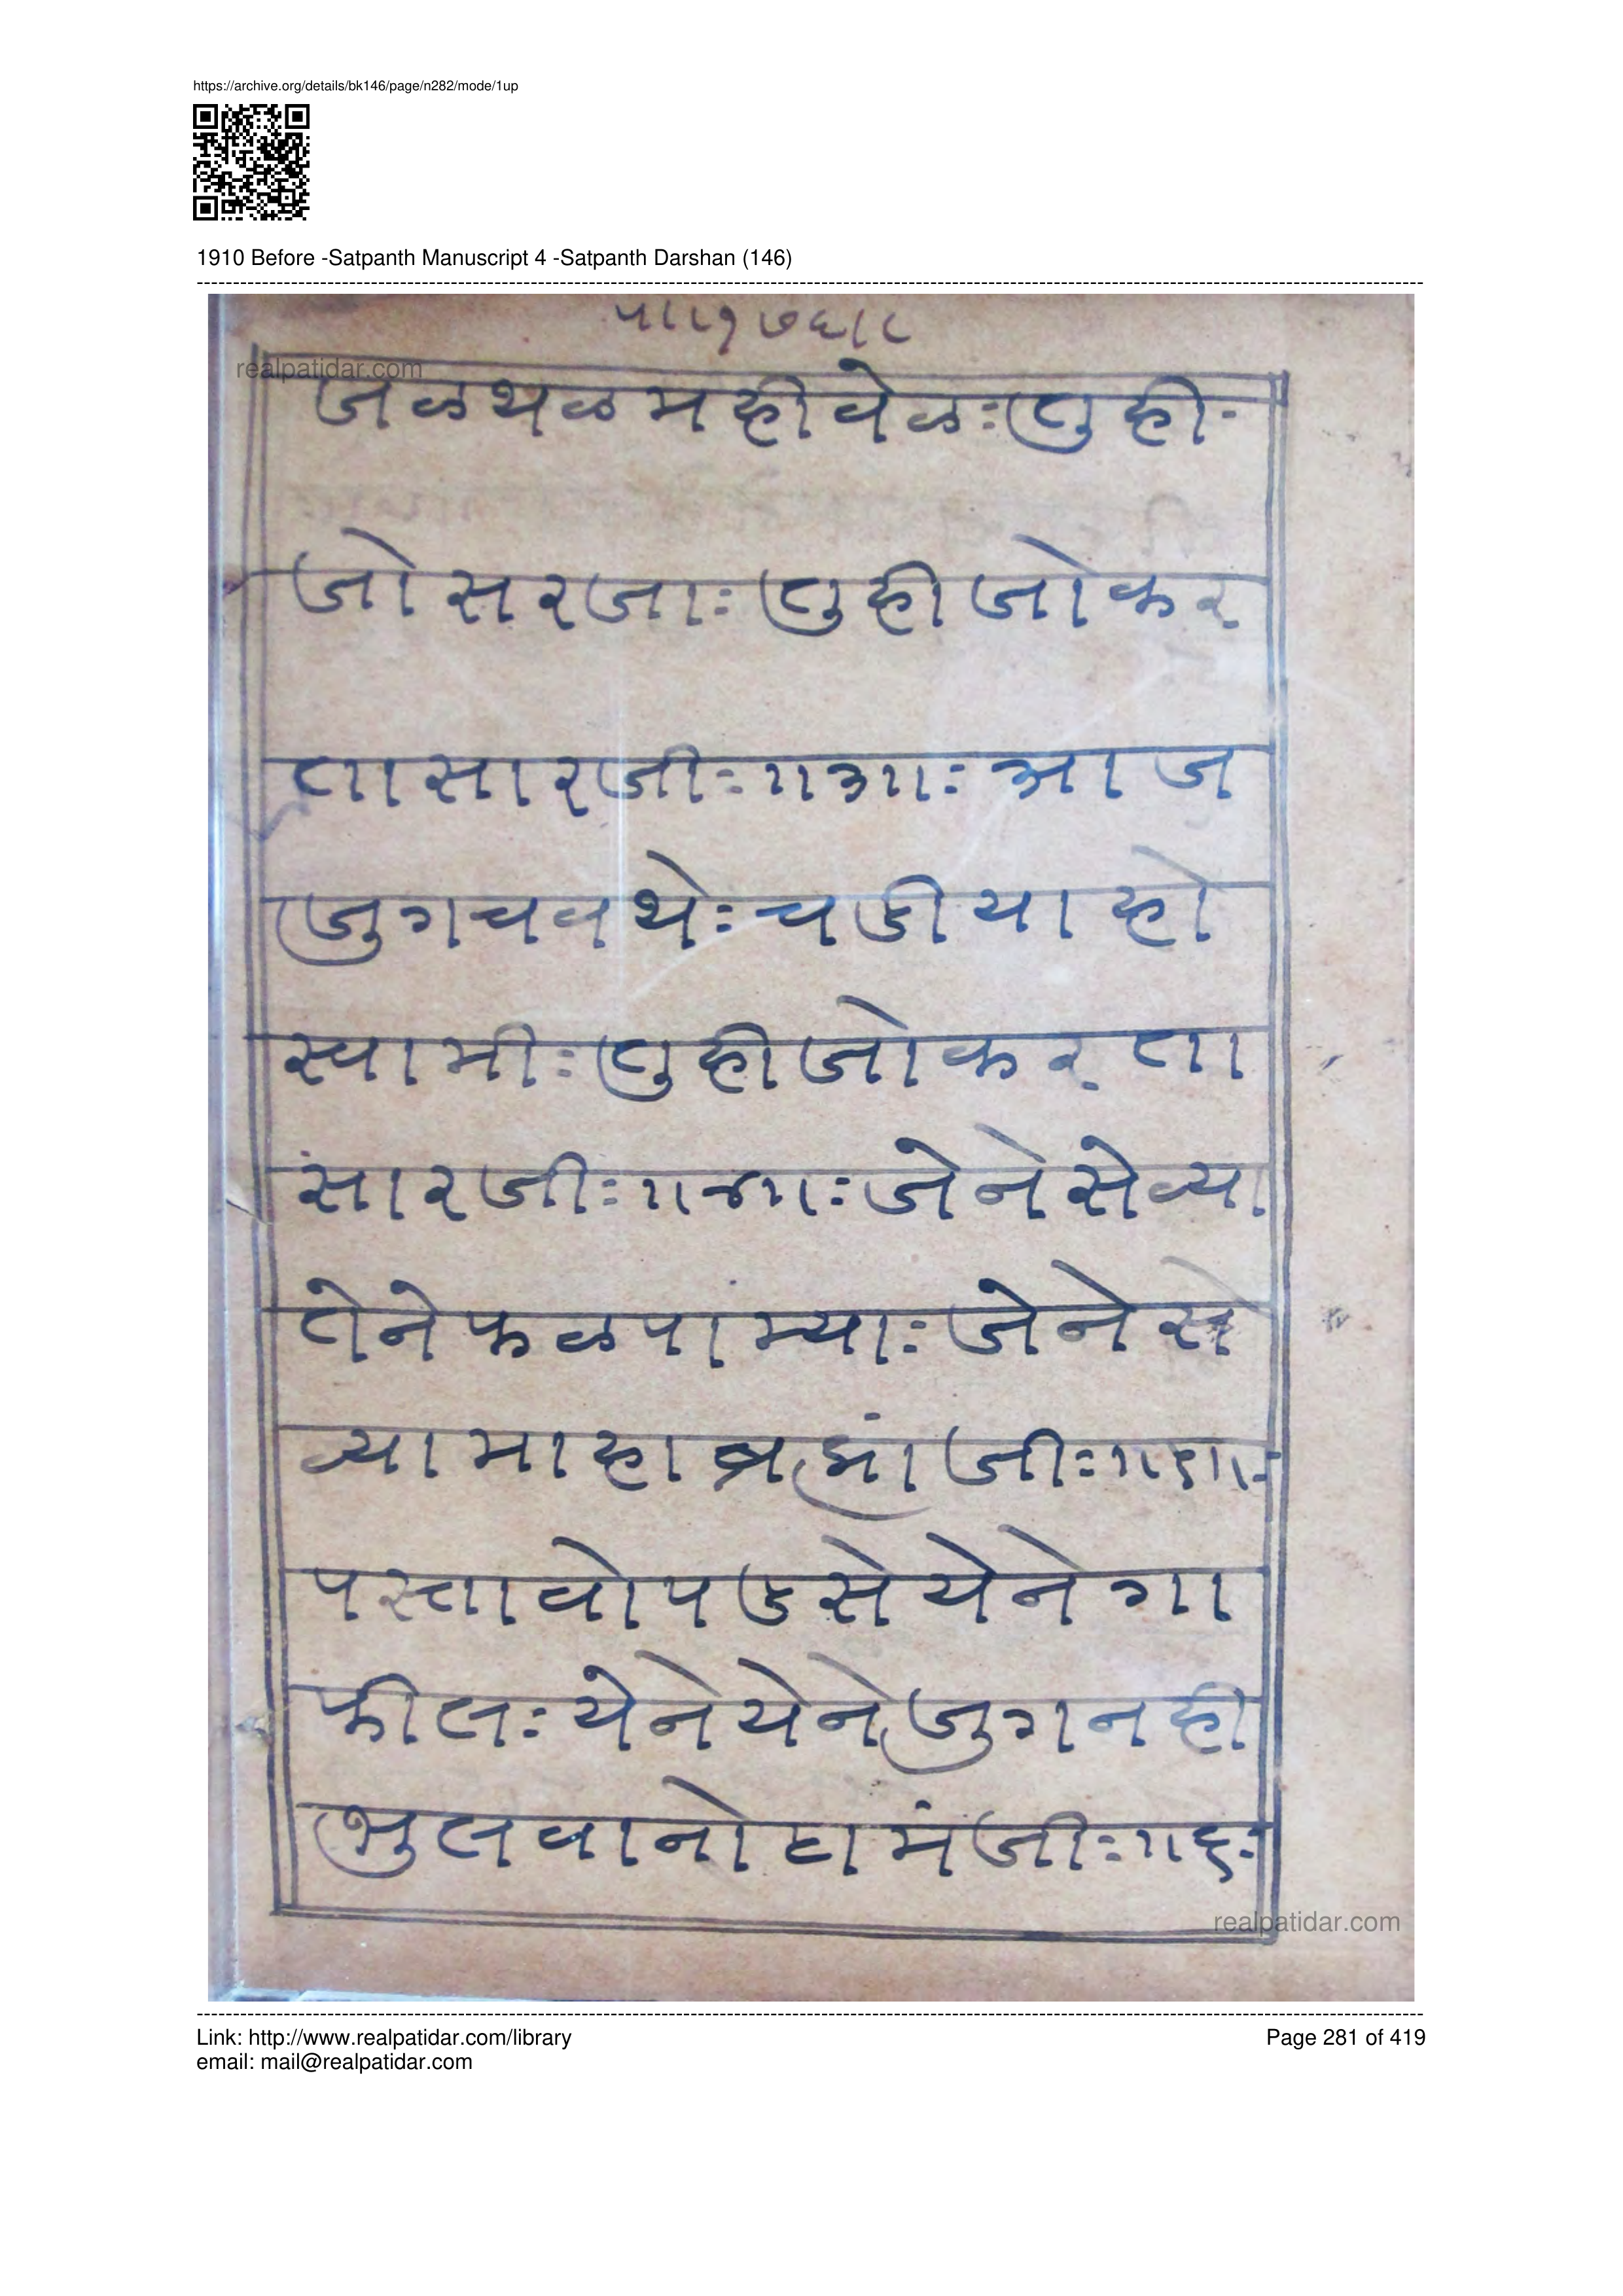 https://archive.org/details/bk146/page/n282/mode/1up
1910 Before -Satpanth Manuscript 4 -Satpanth Darshan (146)
पा।१७६।८
realpatidar.com
जळथळमहीवेळः तुही-
जोसरजाः तुहीजोकर
तासारजीः ॥३॥ः आज
जुगचवथेः चडीयाहो
स्वामीः तुहीजोकरता
सारजीः ॥४॥ः जेनेसेव्या
तेनेफळपांम्याः जेनेसे
व्यामाहाब्रह्मांजीः ॥५॥ः
पस्तावोपडसेयेनेगा
फीलः येनेयेनेजुगनही
भुलवानोठामंजीः ॥६ः
realpatidar.com
Link: http://www.realpatidar.com/library
Page 281 of 419
email: mail@realpatidar.com